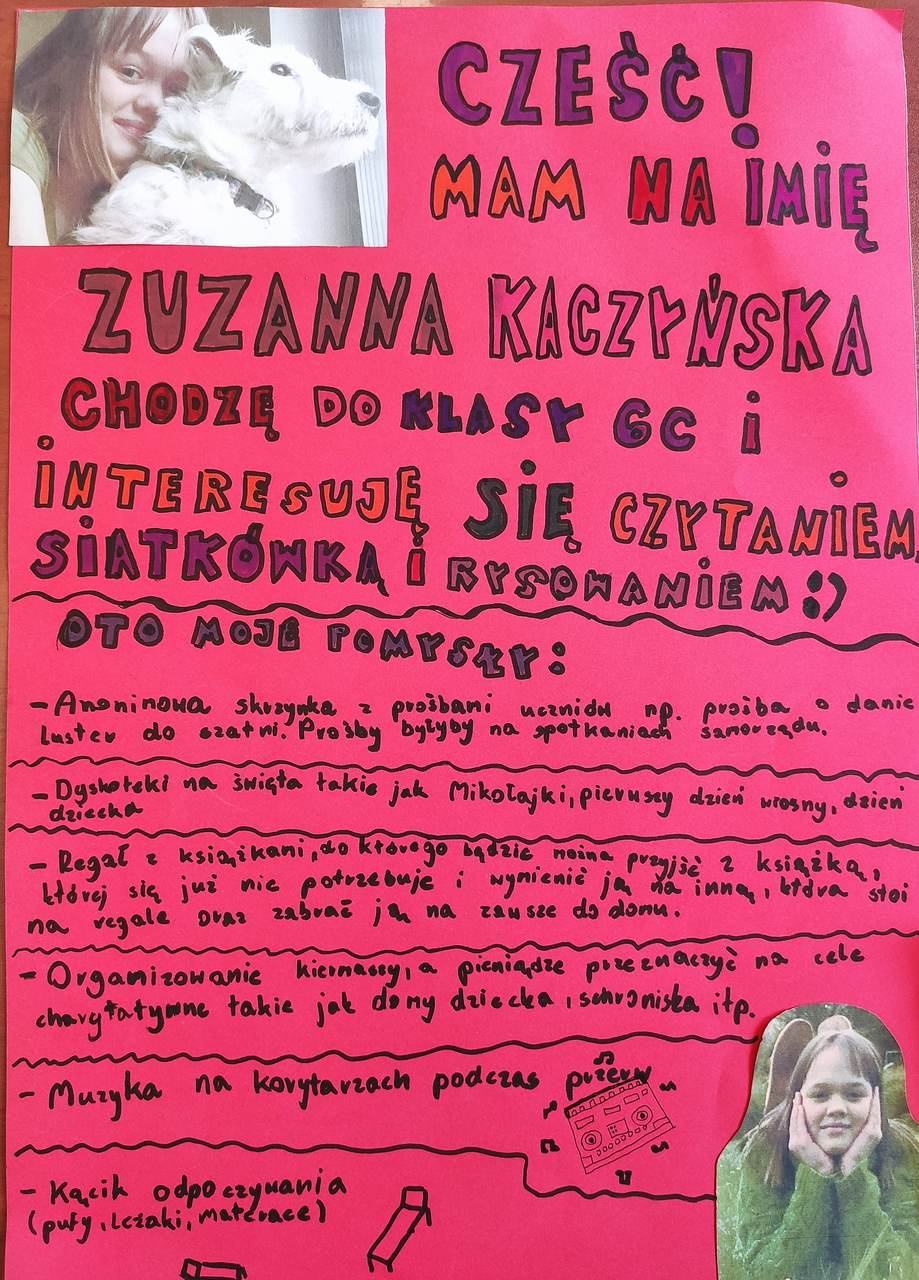 CZEŚĆ!
MAM NA IMIĘ
ZUZANNA KACZYŃSKA
CHODZĘ DO KLASY 6C i
INTERESUJĘ SIĘ CZYTANIEM,
SIATKÓWKĄ i RYSOWANIEM :)
OTO MOJE POMYSŁY:
- Anonimowa skrzynka z prośbami uczniów np. prośba o danie
luster do szatni. Prośby byłyby na spotkaniach samorządu.
- Dyskoteki na święta takie jak Mikołajki, pierwszy dzień wiosny, dzień
dziecka
- Regał z książkami, do którego będzie można przyjść z książką,
której się już nie potrzebuje i wymienić ją na inną, która stoi
na regale oraz zabrać ją na zawsze do domu.
- Organizowanie kiermaszy, a pieniądze przeznaczyć na cele
charytatywne takie jak domy dziecka, schroniska itp.
- Muzyka na korytarzach podczas przerw
- Kącik odpoczywania
(pufy, leżaki, materace)